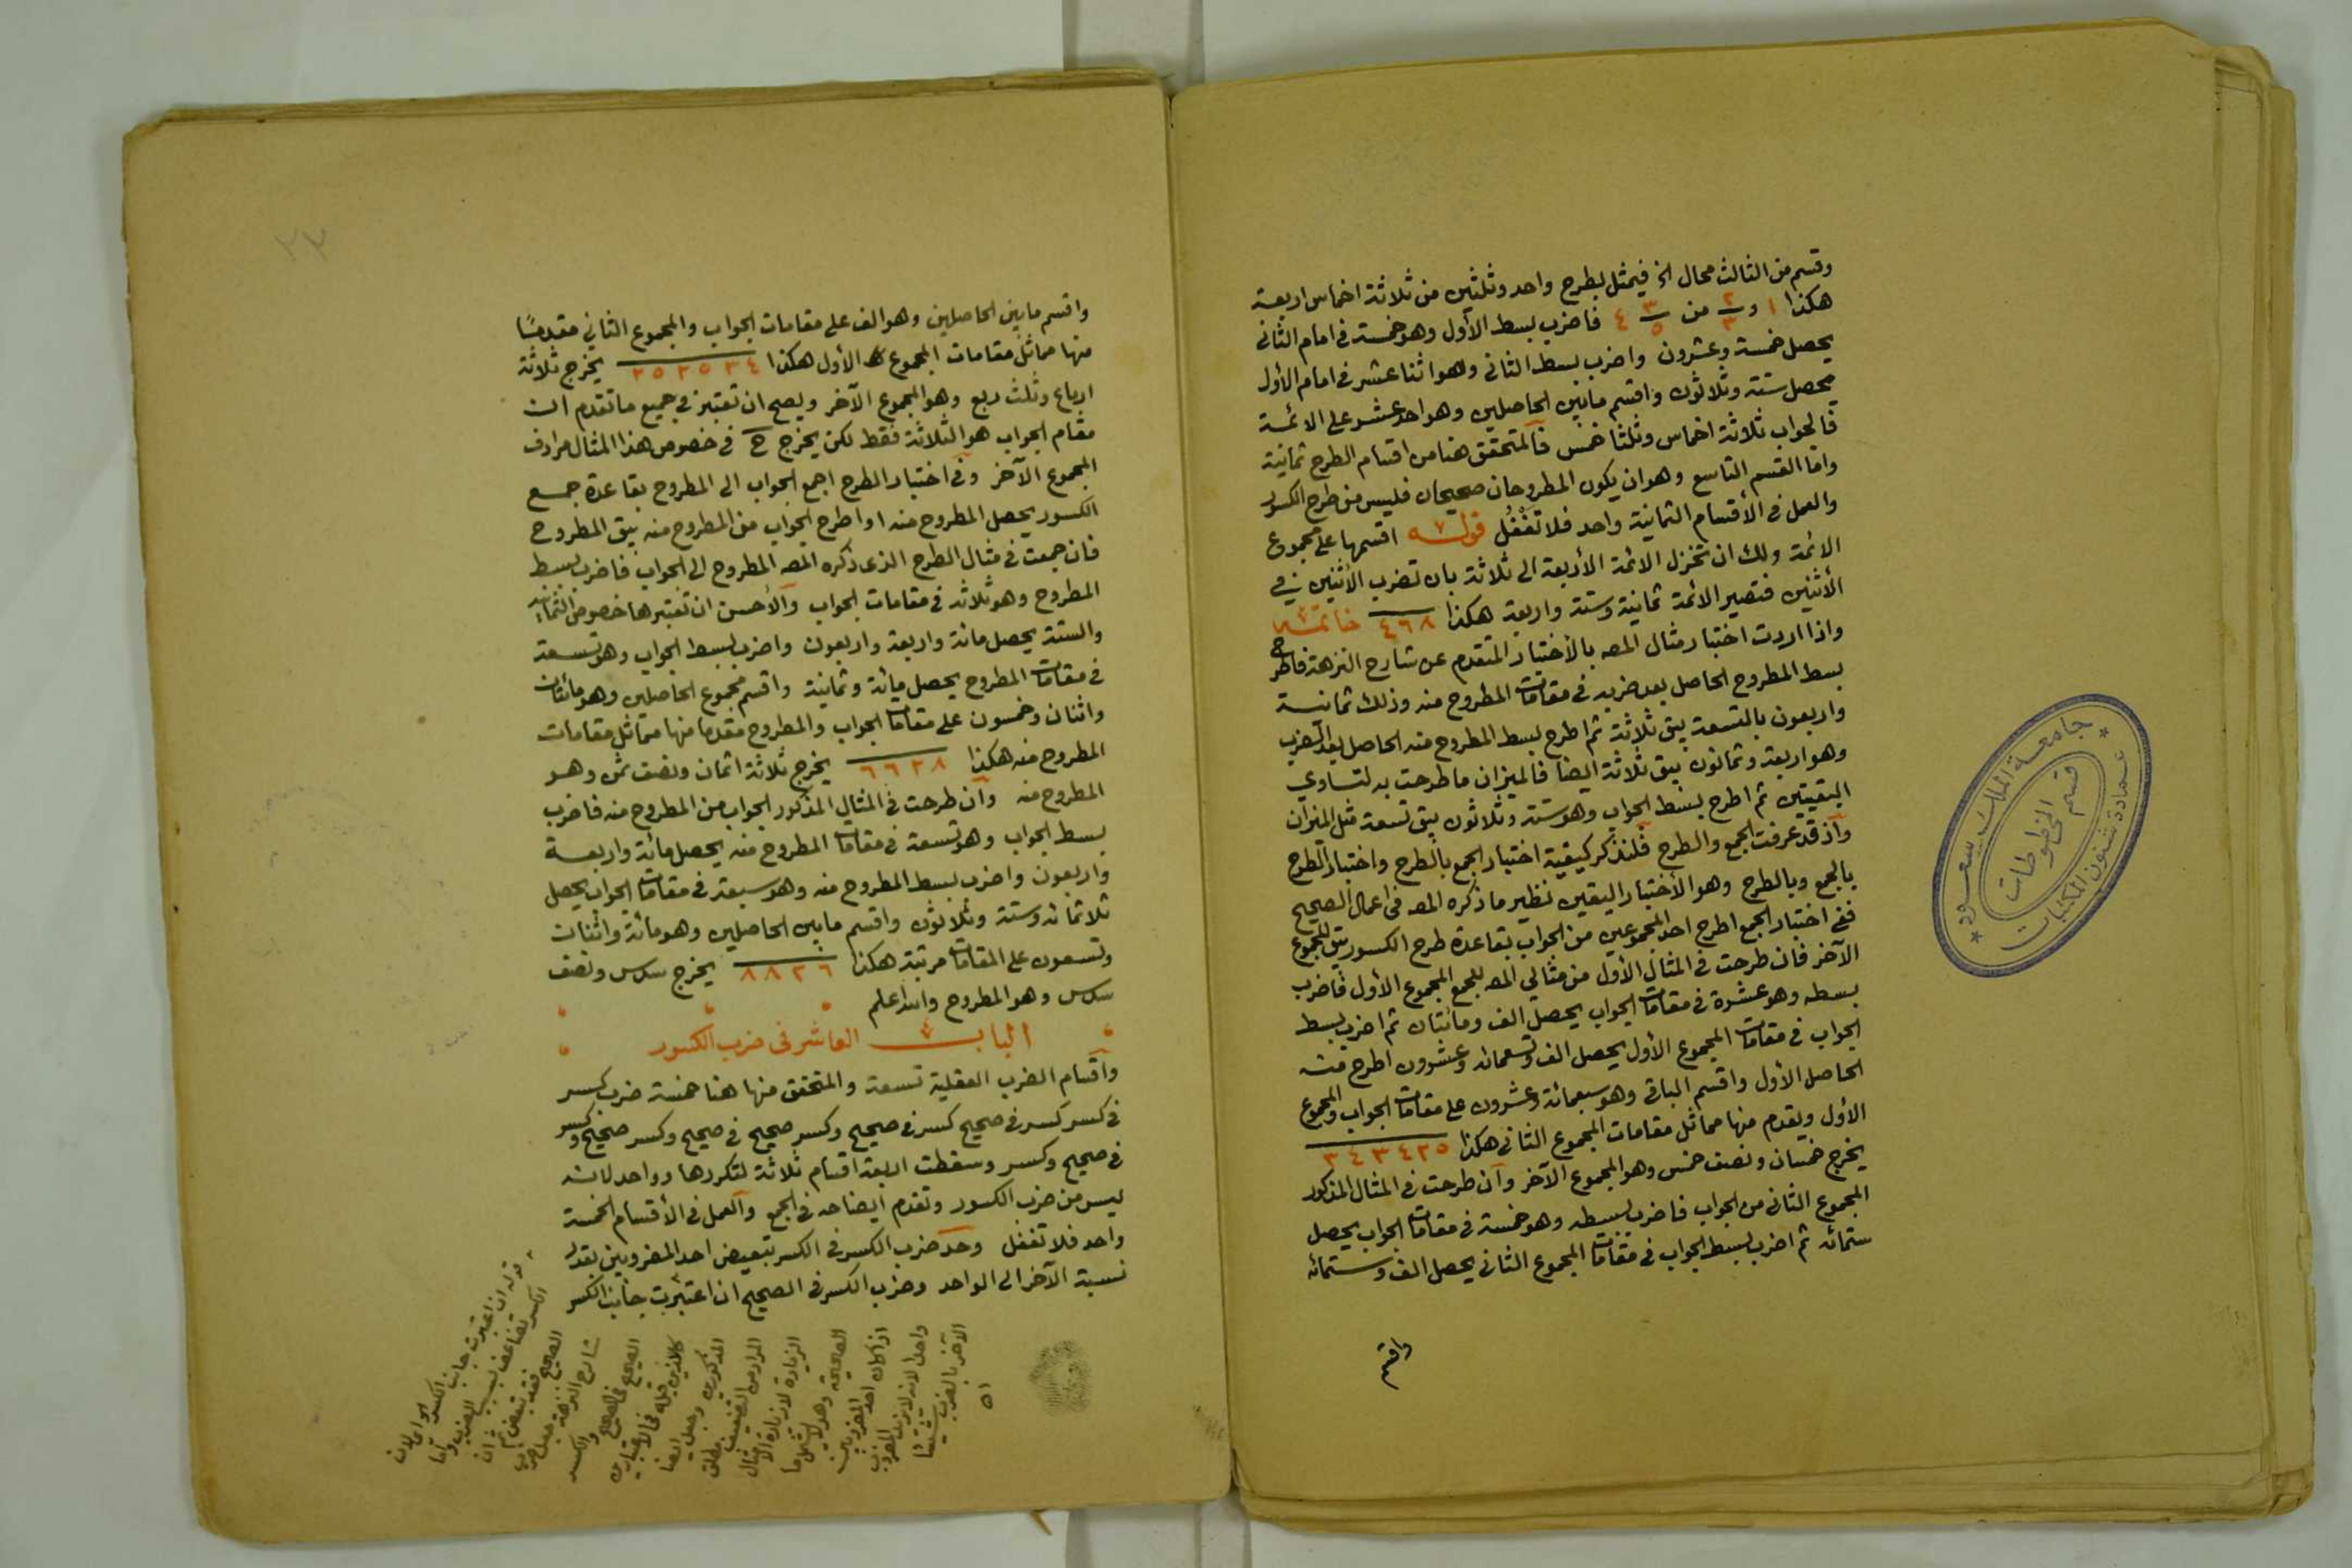 وقسم من الثالث محال اخ فيمثل بطرح واحد وثلثين من ثلاثة اخماس اربعة
هكذا ١ و ٢/٣ من ٣/٥ ٤ فاضرب بسط الأول وهو خمسة في امام الثاني
يحصل خمسة وعشرون واضرب بسط الثاني وهو اثنا عشر في امام الأول
يحصل ستة وثلاثون واقسم مابين الحاصلين وهو احد عشر على الائمة
فالجواب ثلاثة اخماس وثلثا خمس فالمتحقق هنا من اقسام الطرح ثمانية
واما القسم التاسع وهو ان يكون المطروحان صحيحان فليس من طرح الكسور
والعمل في الأقسام الثمانية واحد فلا تغفل قوله اقسمها على مجموع
الائمة ولك ان تختزل الائمة الأربعة الى ثلاثة بان تضرب الأثنين في
الأثنين فتصير الائمة ثمانية وستة واربعة هكذا ٤٦٨ خاتمة
واذا اردت اختبار مثال المصه بالأختبار المتقدم عن شارح النزهة فاطرح
بسط المطروح الحاصل بعد ضربه في مقامات المطروح منه وذلك ثمانية
واربعون بالتسعة يبق ثلاثة ثم اطرح بسط المطروح منه الحاصل بعد الضرب
وهو اربعة وثمانون يبق ثلاثة ايضا فالميزان ما طرحت به لتساوي
البقيتين ثم اطرح بسط الجواب وهو ستة وثلاثون يبق تسعة مثل الميزان
واذ قد عرفت الجمع والطرح فلنذكر كيفية اختبار الجمع بالطرح واختبار الطرح
بالجمع وبالطرح وهو الأختبار اليقين نظير ما ذكره المصه في اعمال الصحيح
ففي اختبار الجمع اطرح احد المجموعين من الجواب بقاعدة طرح الكسور يبق المجموع
الآخر فان طرحت في المثال الأول من مثالي المصه للجمع المجموع الأول فاضرب
بسطه وهو عشرة في مقامات الجواب يحصل الف ومائتان ثم اضرب بسط
الجواب في مقامات المجموع الأول يحصل الف وتسعمائه وعشرون اطرح منه
الحاصل الأول واقسم الباقي وهو سبعمائة وعشرون على مقامات الجواب والمجموع
الأول ويقدم منها مماثل مقامات المجموع الثاني هكذا ٣٤٣٤٢٥
يخرج خمسان ونصف خمس وهو المجموع الآخر وان طرحت في المثال المذكور
المجموع الثاني من الجواب فاضرب بسطه وهو خمسة في مقامات الجواب يحصل
ستمائه ثم اضرب بسط الجواب في مقامات المجموع الثاني يحصل الف وستمائه
واقسم
جامعة الملك سعود
قسم المخطوطات
عمادة شئون المكتبات
واقسم مابين الحاصلين وهو الف على مقامات الجواب والمجموع الثاني مقدمًا
منها مماثل مقامات المجموع الأول هكذا ٢٥٢٥٣٤ يخرج ثلاثة
ارباع وثلث ربع وهو المجموع الآخر ويصح ان تعتبر في جميع ما تقدم ان
مقام الجواب هو الثلاثة فقط لكن يخرج ح في خصوص هذا المثال مرادف
المجموع الآخر وفي اختبار الطرح اجمع الجواب الى المطروح بقاعدة جمع
الكسور يحصل المطروح منه او اطرح الجواب من المطروح منه يبق المطروح
فان جمعت في مثال الطرح الذي ذكره المصه المطروح الى الجواب فاضرب بسط
المطروح وهو ثلاثة في مقامات الجواب والأحسن ان تعتبرها خصوص الثمانية
والستة يحصل مائة واربعة واربعون واضرب بسط الجواب وهو تسعة
في مقامات المطروح يحصل مائة وثمانية واقسم مجموع الحاصلين وهو مائتان
واثنان وخمسون على مقامات الجواب والمطروح مقدما منها مماثل مقامات
المطروح منه هكذا ٦٦٢٨ يخرج ثلاثة اثمان ونصف ثمن وهو
المطروح منه وان طرحت في المثال المذكور الجواب من المطروح منه فاضرب
بسط الجواب وهو تسعة في مقامات المطروح منه يحصل مائة واربعة
واربعون واضرب بسط المطروح منه وهو سبعة في مقامات الجواب يحصل
ثلاثمائه وستة وثلاثون واقسم مابين الحاصلين وهو مائة واثنان
وتسعون على المقامات مرتبة هكذا ٨٨٢٦ يخرج سدس ونصف
سدس وهو المطروح والله اعلم
الباب العاشر في ضرب الكسور
واقسام الضرب العقلية تسعة والمتحقق منها هنا خمسة ضرب كسر
في كسر كسر في صحيح كسر في صحيح وكسر صحيح في صحيح وكسر صحيح وكسر
في صحيح وكسر وسقطت اربعة اقسام ثلاثة لتكررها وواحد لانه
ليس من ضرب الكسور وتقدم ايضاحه في الجمع والعمل في الأقسام الخمسة
واحد فلا تغفل وحد ضرب الكسر في الكسر تبعيض احد المضروبين بقدر
نسبة الآخر الى الواحد وضرب الكسر في الصحيح ان اعتبرت جانب الكسر
قوله ان اعتبرت جانب الكسر اي لان
الكسر تضاعف بسبب الضرب واما
الصحيح فقد تبعض ثم ان
شارح النزهة جعل ضرب
الصحيح في الصحيح والكسر
المذكورين وجعل ايضا
المراد من التضعيف مطلق
الزيادة لا زيادة الأمثال
اذا كان احد المضروبين
الآخر بالضرب شيئا
اه